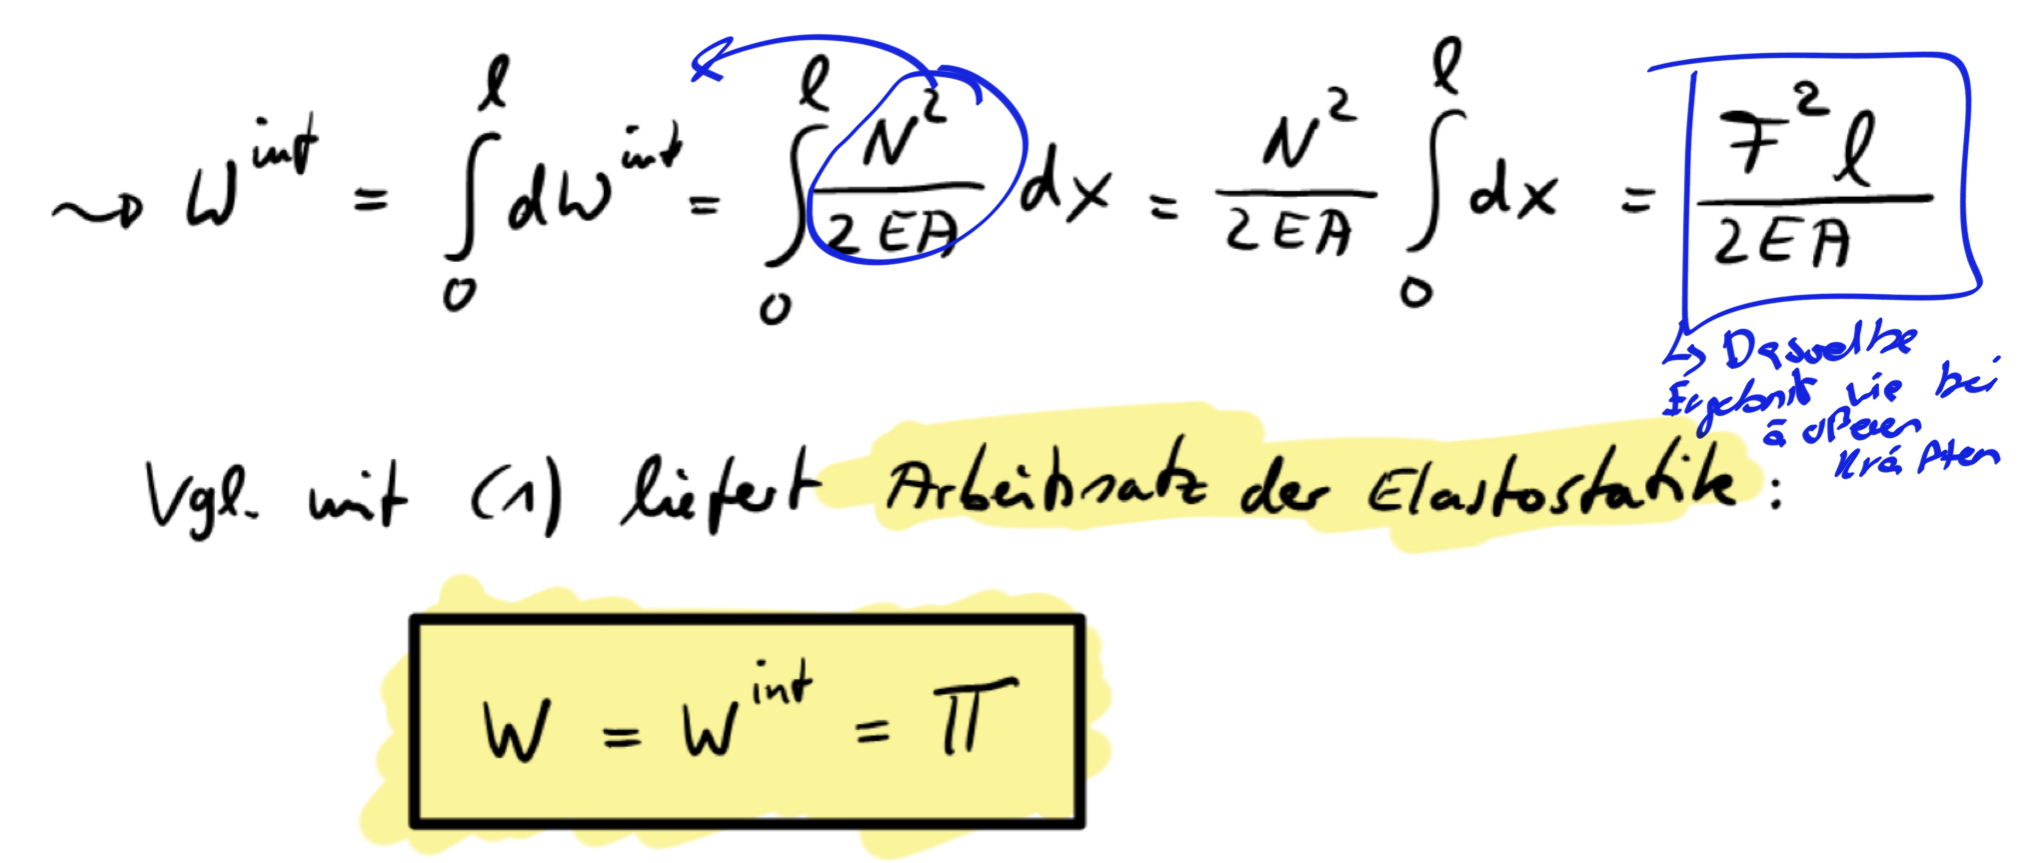 ⤳ W^int = ∫₀^l dW^int = ∫₀^l N²/2EA dx = N²/2EA ∫₀^l dx = F²l/2EA
↳ Dasselbe
Ergebnis wie bei
äußeren
Kräften
Vgl. mit (1) liefert Arbeitssatz der Elastostatik:
W = W^int = Π